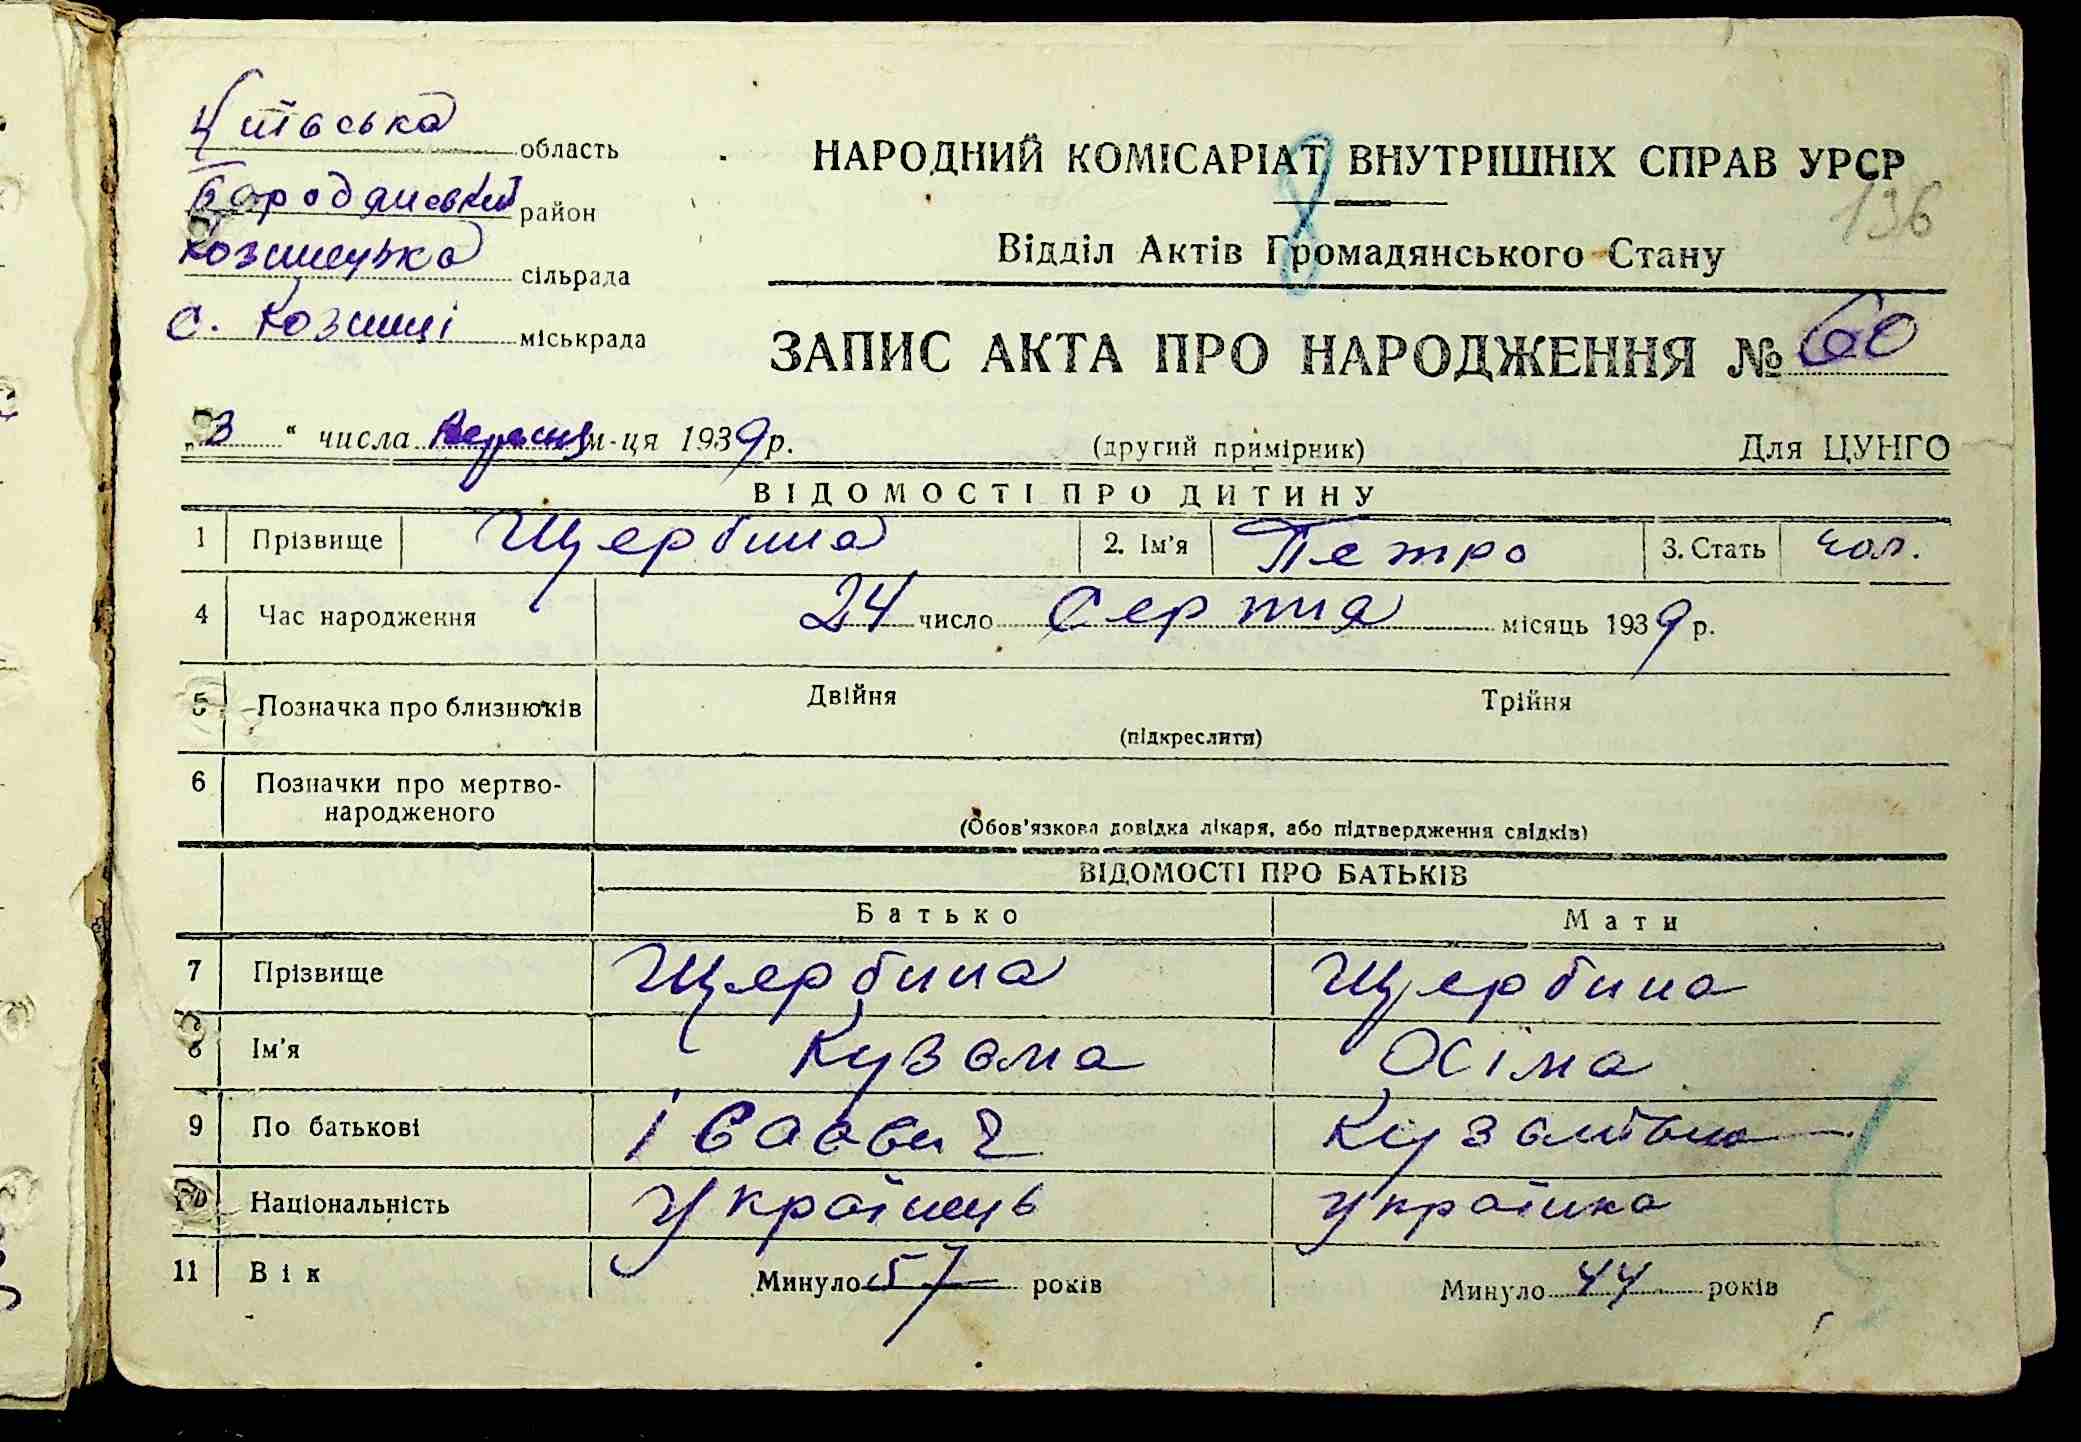 Київська область
Бородянський район
Козинецька сільрада
с. Козинці міськрада
НАРОДНИЙ КОМІСАРІАТ ВНУТРІШНІХ СПРАВ УРСР
136
Відділ Актів Громадянського Стану
ЗАПИС АКТА ПРО НАРОДЖЕННЯ № 60
„3“ числа Вересня м-ця 1939 р. (другий примірник) Для ЦУНГО
ВІДОМОСТІ ПРО ДИТИНУ
1 Прізвище Щербина 2. Ім'я Петро 3. Стать чол.
4 Час народження 24 число Серпня місяць 1939 р.
5 Позначка про близнюків Двійня Трійня
(підкреслити)
6 Позначки про мертво-
народженого
(Обов'язкова довідка лікаря, або підтвердження свідків)
ВІДОМОСТІ ПРО БАТЬКІВ
Батько Мати
7 Прізвище Щербина Щербина
8 Ім'я Кузьма
9 По батькові Кузьмівна
10 Національність Українець Українка
11 Вік Минуло 57 років Минуло 44 років